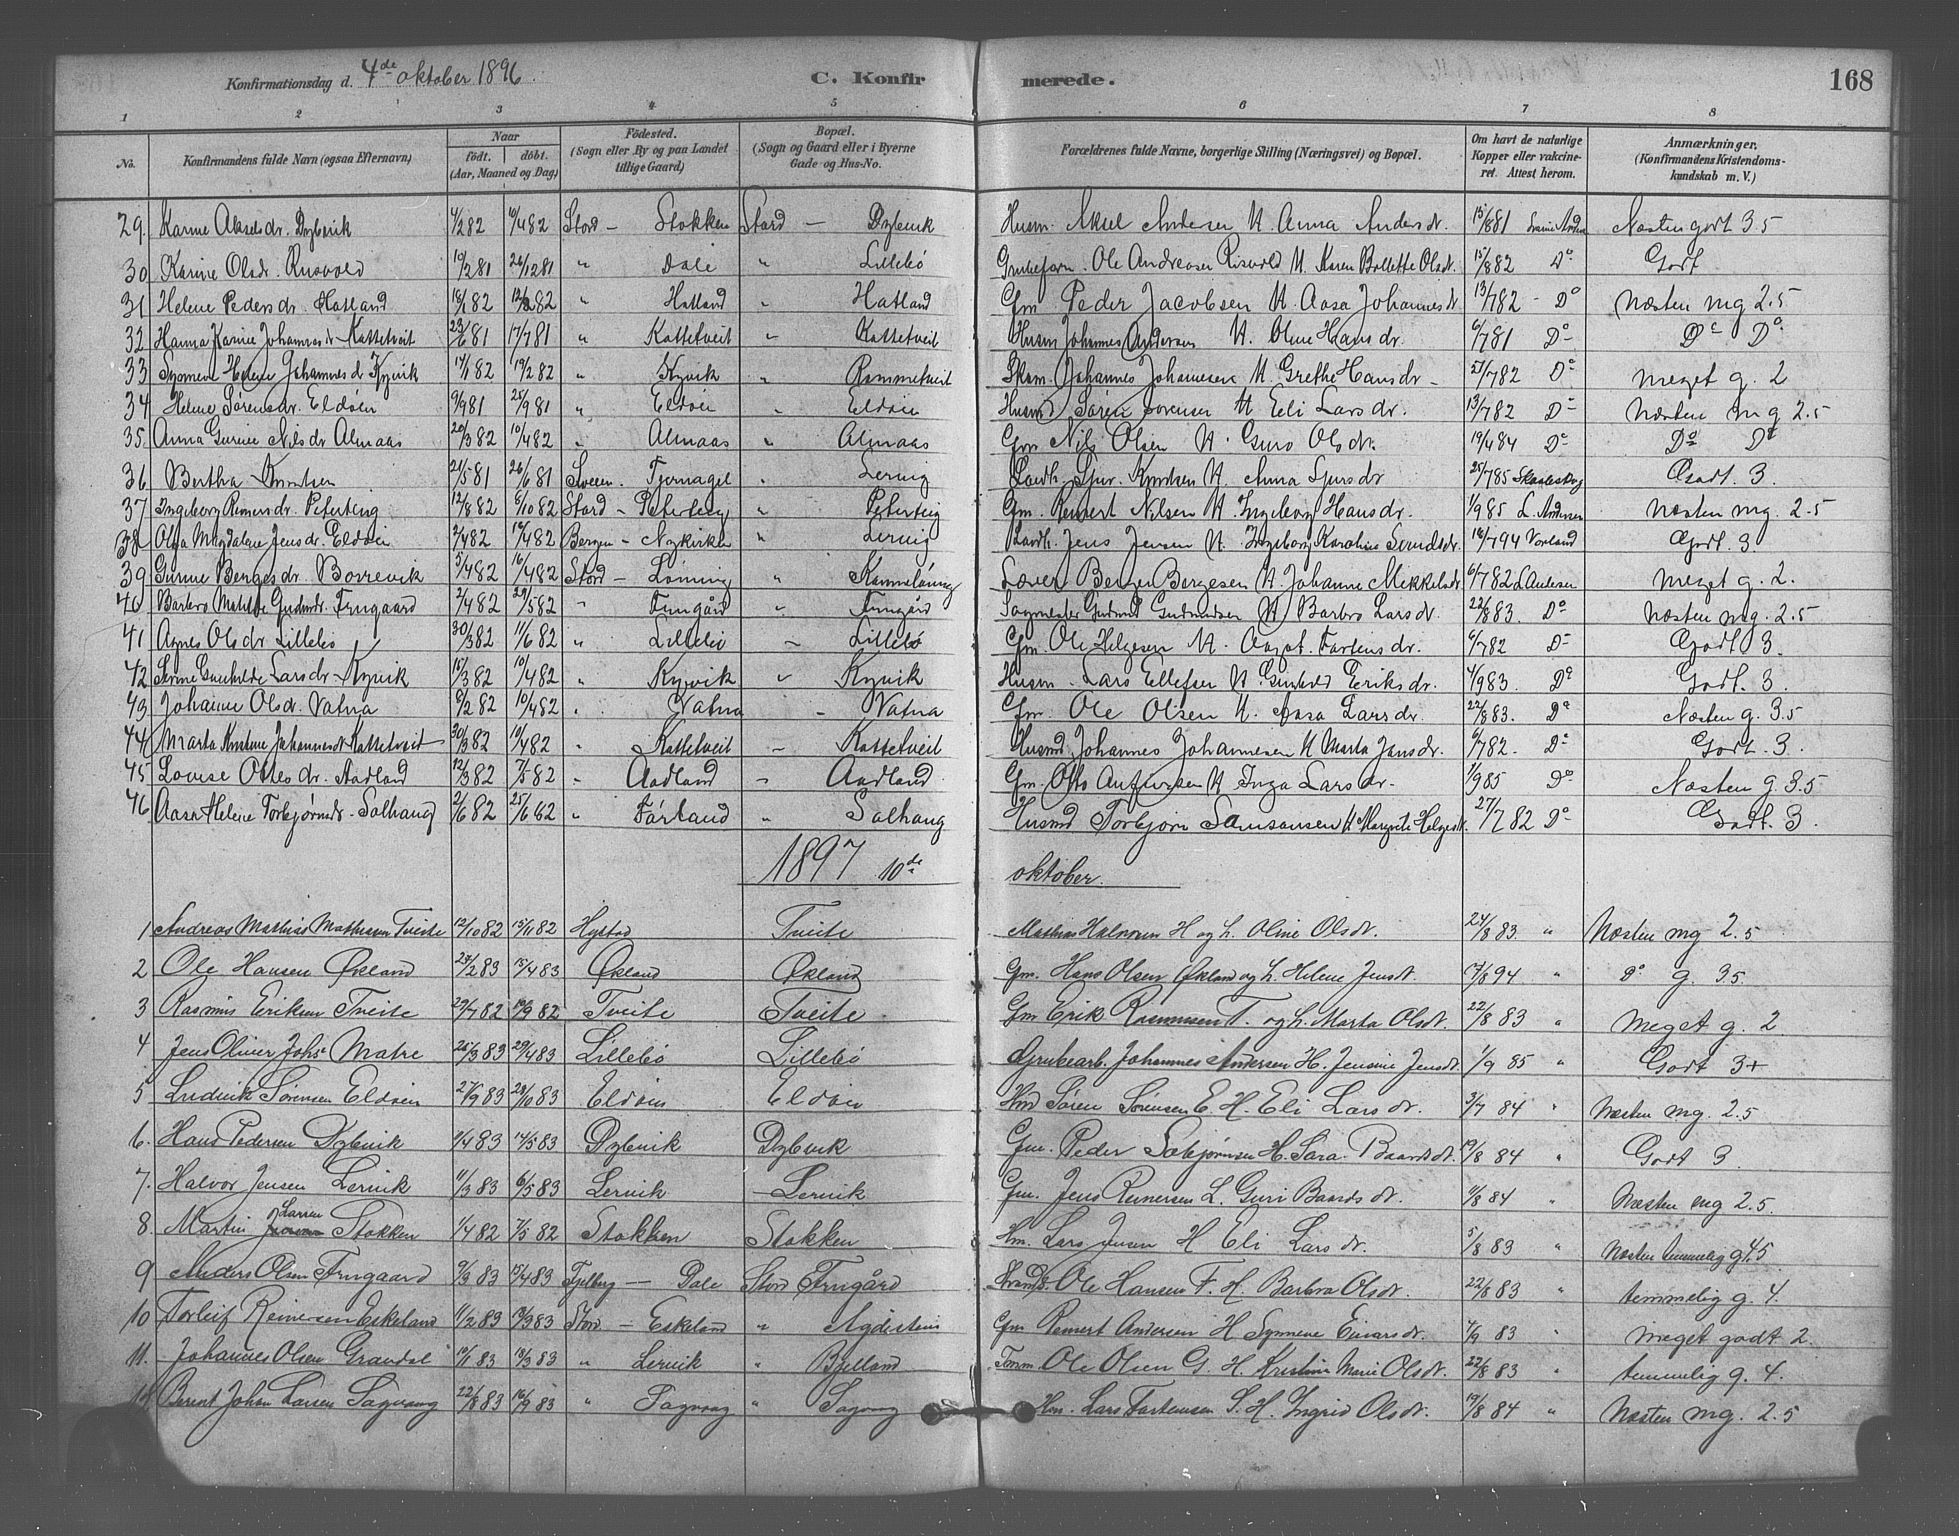 Konfirmationsdag d. 4de oktober 1896. C. Konfirmerede. 168
1 2 3 4 5 6 7 8
No. Konfirmandens fulde Navn (ogsaa Efternavn) Naar födt. döbt. (Aar, Maaned og Dag) Födested. (Sogn eller By og paa Landet tillige Gaard) Bopæl. (Sogn og Gaard eller i Byerne Gade og Hus-No. Forældrenes fulde Navne, borgerlige Stilling (Næringsvei) og Bopæl. Om havt de naturlige Kopper eller vakcineret. Attest herom. Anmærkninger. (Konfirmandens Kristendomskundskab m. V.)
29. Karine Akselsdr. Dybvik 4/282 10/482 Stord – Stokken Stord – Dybvik Husm. Aksel Andersen H. Anna Andersdr. 15/881 Næsten godt 3.5
30 Karine Olsdr. Rusvold 19/281 26/1281 " Dale " Lillebö Grubefor. Ole Andreasen Risvold H. Karen Bollette Olsdr. 15/882 Do Godt
31 Helene Pedersdr. Hatland 18/182 12/282 " Hatland " Hatland Gm Peder Jacobsen H. Aasa Johannesdr 13/782 - Do Næsten mg 2.5
32 Hanna Karine Johannesdr Kattetveit 23/681 17/781 " Kattetveit " Kattetveit Husm Johannes Andersen H. Olene Hansdr. 6/781 Do Do Do
33 Synneve Helene Johannesd Kyvik 17/182 19/282 " Kyvik " Rommetveit Skom. Johannes Johannesen H. Grethe Hansdr – 27/782 Do meget g. 2
34 Helene Sørensdr. Eldøen 9/981 25/981 " Eldøen " Eldøen Husmd Sören Sorensen H Eli Larsdr. 13/782 Do Næsten mg 2.5
35. Anna Gurine Nilsdr Almaas 20/382 10/482 " Almaas " Almaas Gm Nils Olsen H. Guro Olsdr. 19/484 Do Do Do
36 Bertha Knutsen 21/581 26/681 Sveen. Tjernagel " Lervig Landh. Sjur. Knudsen H. Anna Sjursdr 25/785 Godt 3.
37 Ingeborg Reinersdr. Peterteig 12/882 8/1082 Stord – Peterteig " Peterteig Gm. Reinert Nilsen H. Ingeborg Hansdr. 1/985 L. Andersen Næsten mg. 2.5
38 Olga Magdalene Jensdr. Eldöen 2/482 10/482 Bergen – Nykirken " Lervig Landh. Jens Jensen H. Ingeborg Karoline 16/794 Vorland Godt. 3.
39 Gurine Bergesdr. Borrevik 5/482 16/482 Stord – Löning " Berge Bergesen H. Johanne Mikkelsdr 6/782 L Andersen meget g. 2.
40 Barbro Matilde Gudmdr. Frugaard 2/482 29/582 " Frugård " Frugård Sagmester Gudmd Gudmundsen H Barbro Larsdr. 22/883. Do Næsten mg. 2.5
41 Agnes Olsdr Lillebö 30/382 11/682 " Lillebö " Lillebö Gm. Ole Helgesen H. Aagot. Fartensdr. 6/782 Do Godt 3.
42 Serine Gunhilde Larsdr – Kyvik 15/382 10/482 " Kyvik " Kyvik Husm – Lars Ellefsen H. Gunhild Eriksdr. 4/983. Do Godt. 3.
43 Johanne Olsdr. Vatna 8/282 10/482 " Vatna " Vatna Gm. Ole Olsen H. Aasa Larsdr. 22/883. Do Næsten g. 3.5
44 Marta Kristine Johannesdr Kattetveit 30/382 10/482 " Kattetveit " Kattetveit Husmd. Johannes Johannesen H Marta Jansdr. 6/782 – Do Godt. 3.
45 Lovise Ottesdr. Aadland 12/382 7/582 " Aadland " Aadland Gm. Otto H Inga Larsdr. 1/985 Do Næsten g 3.5
46 Aasa Helene Torbjörnsdr – Solhaug 2/682 25/682 " Förland " Solhaug Husmd Torbjörn Samsonsen H Margrete Helgesdr. 27/782 Do Godt. 3.
1897 10de oktober.
1 Andreas Mathias Mathiasen Tveite 12/1082 15/1182 Hystad Tveite Mathias Halvorsen H og L. Oline Olsdr. 24/883. " Næsten mg 2.5
2 Ole Hansen Økland 27/283 15/483 Økland Økland Gm. Hans Olsen Økland og L. Helene Jensdr. 17/894 " Do g. 3.5
3 Rasmus Eriksen Tveite 29/782 10/982 Tveite Tveite Gm Erik Rasmussen T. og L. Marta Olsdr. 22/883 " Meget g. 2
4 Jens Oliver Johs. Matre 25/383 29/483 Lillebö Lillebö Grubearb. Johannes Andersen H. Jensine Jensdr. 1/9 85 " Godt 3+
5 Ludvik Sörensen Eldöen 27/983 28/1083 Eldöen Eldöen Hmd Sören Sörensen E. H. Eli Larsdr. 3/7 84 " Næsten mg. 2.5
6. Hans Pedersen Dybvik 1/483 14/583 Dybvik Dybvik Gm. Peder Sæbjørnsen H. Sara Baardsdr. 19/8 84 " Godt 3.
7. Halvor Jensen Lervik 11/383 6/583 Lervik Lervik Gm. Jens Reinersen L. Guri Baardsdr. 11/884 " Næsten mg 2.5.
8. Martin Larsen Stokken 1/482 7/5 82 Stokken Stokken Hm. Lars Jensen H Eli Larsdr. 5/8 83 " Næsten temmelig g. 4.5
9 Anders Olsen Frugaard 9/383 15/483 Fjelberg – Dale Stord Frugård Ole Hansen F. H. Barbra Olsdr. 22/8 83 " temmelig g. 4.
10 Torleif Reinersen Eskeland 11/283 18/383 Stord – Eskeland " Agdestein Gm Reinert Andersen H Synneve Einarsdr. 4/9 83 " meget godt 2.
11. Johannes Olsen Grandal 10/183 18/383 " Lervik " Bjelland Tömm. Ole Olsen G. H. Kristine Marie Olsdr. 22/883 " temmelig g. 4.
12 Berent Johan Larsen Sagvaag 22/883 16/983 " Sagvaag " Sagvaag Hm. Lars Fartensen S. H. Ingrid Olsdr. 19/8 84 " Næsten mg. 2.5